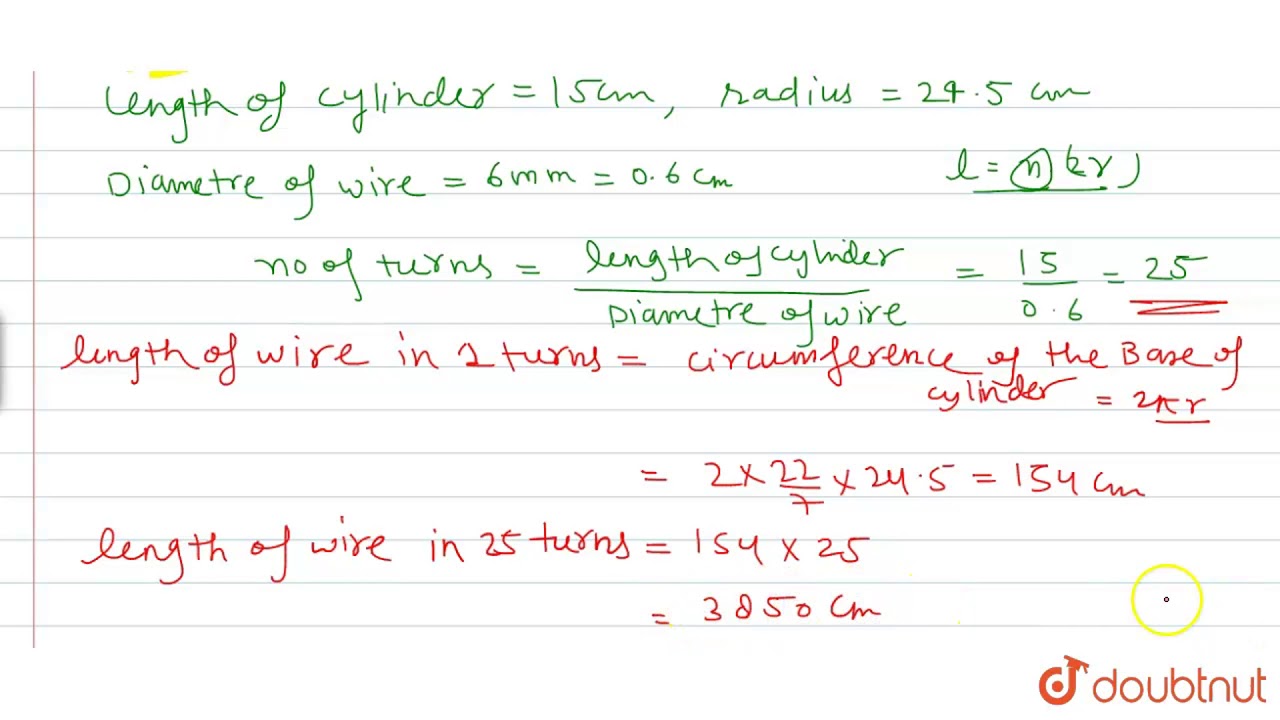 Length of cylinder = 15 cm, radius = 24.5 cm
Diametre of wire = 6mm = 0.6 cm
l = n(2r)
no of turns = length of cylinder / Diametre of wire = 15 / 0.6 = 25
length of wire in 1 turns = circumference of the Base of
cylinder = 2πr
= 2 × 22/7 × 24.5 = 154 cm
length of wire in 25 turns = 154 × 25
= 3850 cm
doubtnut